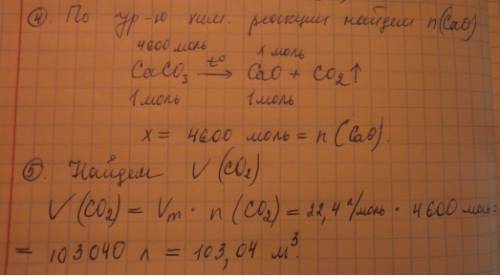 ④. По ур-ю хим. реакции найдем n(CaO)
4600 моль x моль
CaCO₃ —t°→ CaO + CO₂↑
1 моль 1 моль
x = 4600 моль = n(CaO).
⑤. Найдем V(CO₂)
V(CO₂) = Vm · n(CO₂) = 22,4 л/моль · 4600 моль =
= 103040 л = 103,04 м³.